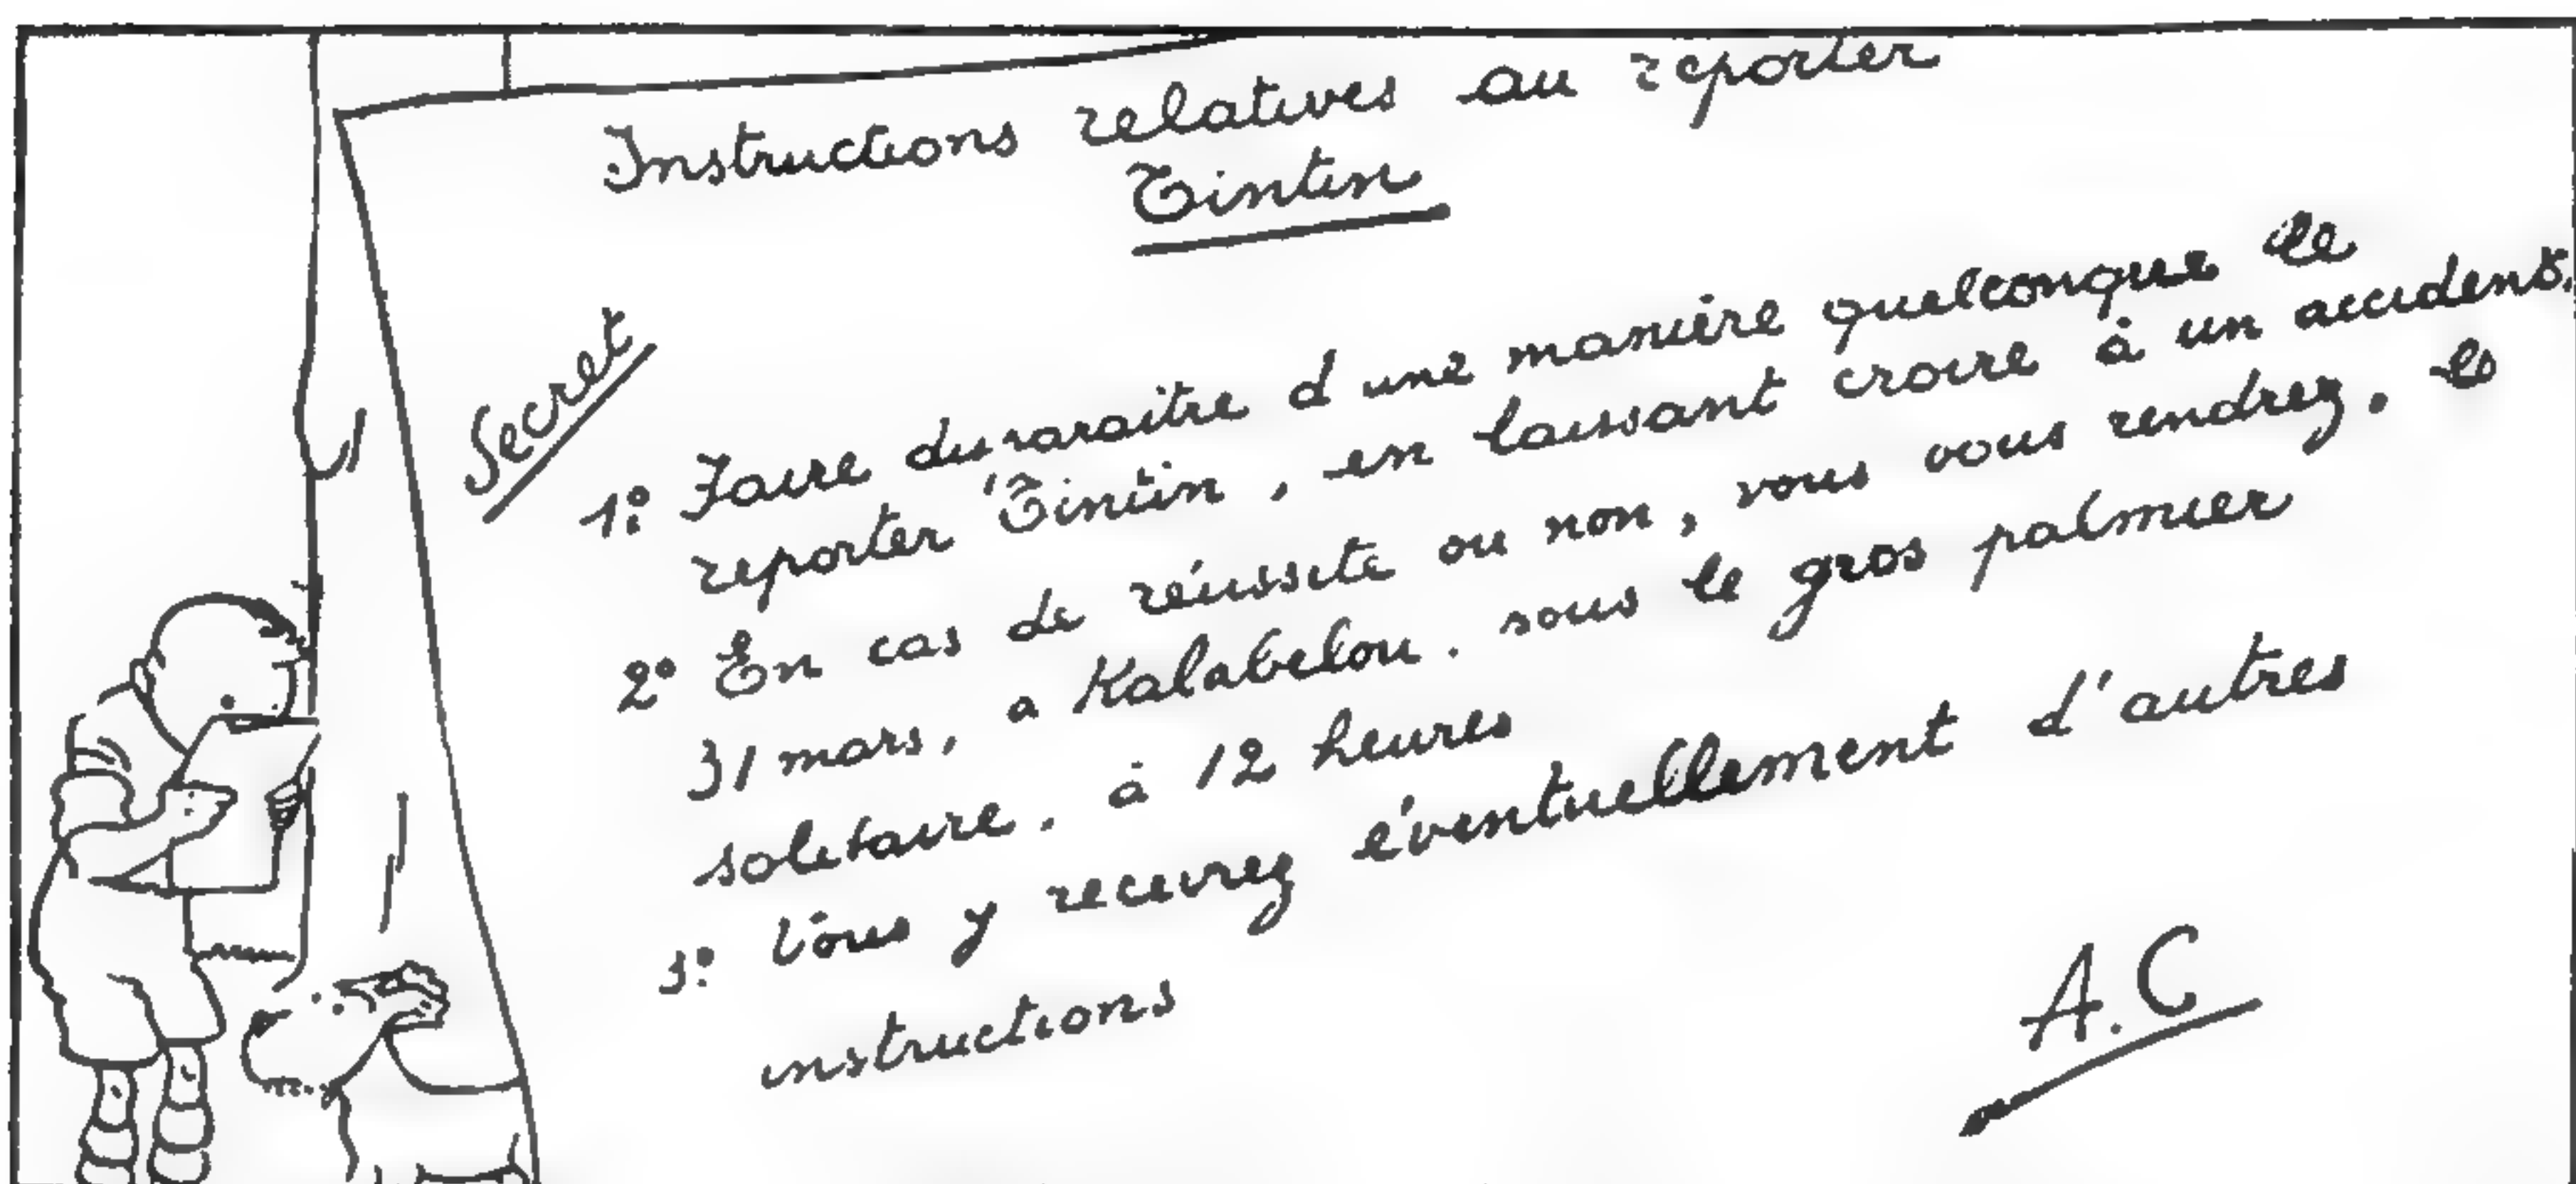 Instructions relatives au reporter
Tintin
Secret
1º Faire disparaitre d'une manière quelconque le
reporter Tintin, en laissant croire à un accident.
2º En cas de réussite ou non, vous vous rendrez. le
31 mars, a Kalabelou. sous le gros palmier
solitaire. à 12 heures
3º Vous y recevrez éventuellement d'autres
instructions
A.C